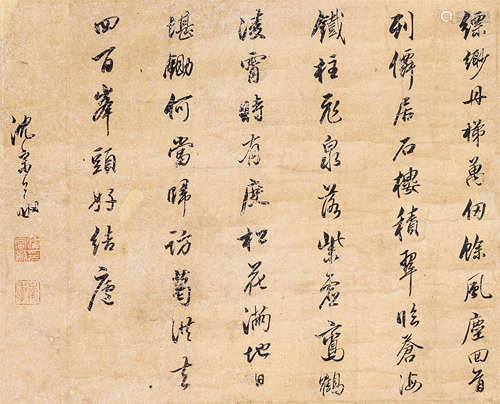 縹緲丹梯萬仞餘風塵回首
列僊居石樓積翠臨蒼海
鐵柱飛泉落紫虛鸞鶴
淩霄時有度松花滿地日
堪鋤何當歸訪葛洪去
四百峯頭好結廬
沈宗敬